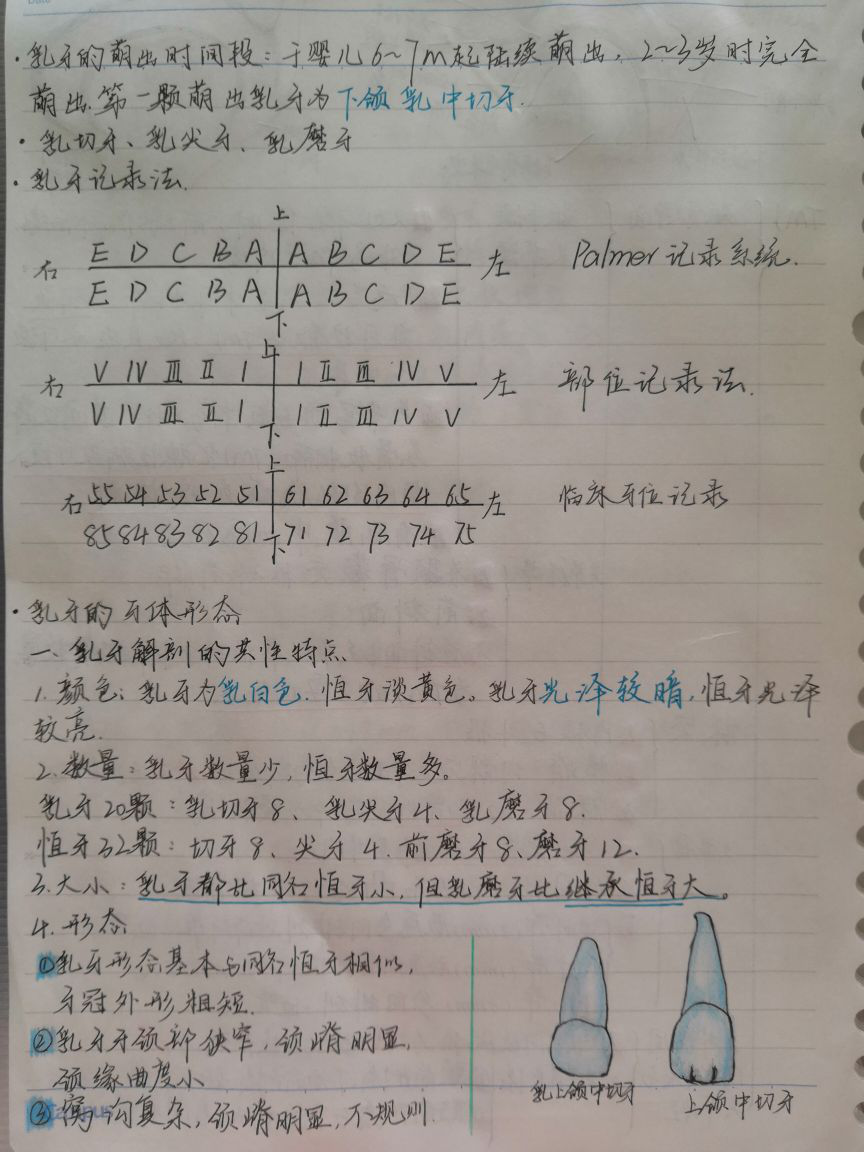 ·乳牙的萌出时间段：于婴儿6~7m起陆续萌出，2~3岁时完全
萌出.第一颗萌出乳牙为下颌乳中切牙.
·乳切牙、乳尖牙、乳磨牙
·乳牙记录法.
上
右 E D C B A A B C D E 左 Palmer记录系统.
E D C B A A B C D E
下
上
右 V IV III II I I II III IV V 左 部位记录法.
V IV III II I I II III IV V
下
上
右 55 54 53 52 51 61 62 63 64 65 左 临床牙位记录
85 84 83 82 81 71 72 73 74 75
下
·乳牙的牙体形态
一、乳牙解剖的共性特点
1.颜色：乳牙为乳白色.恒牙淡黄色。乳牙光泽较暗，恒牙光泽
较亮.
2.数量：乳牙数量少，恒牙数量多。
乳牙20颗：乳切牙8、乳尖牙4、乳磨牙8.
恒牙32颗：切牙8、尖牙4.前磨牙8、磨牙12.
3.大小：乳牙都比同名恒牙小，但乳磨牙比继承恒牙大。
4.形态
①乳牙形态基本与同名恒牙相似，
牙冠外形粗短.
②乳牙牙颈部狭窄，颈嵴明显，
颈缘曲度小
③窝沟复杂，颈嵴明显，不规则.
乳上颌中切牙
上颌中切牙